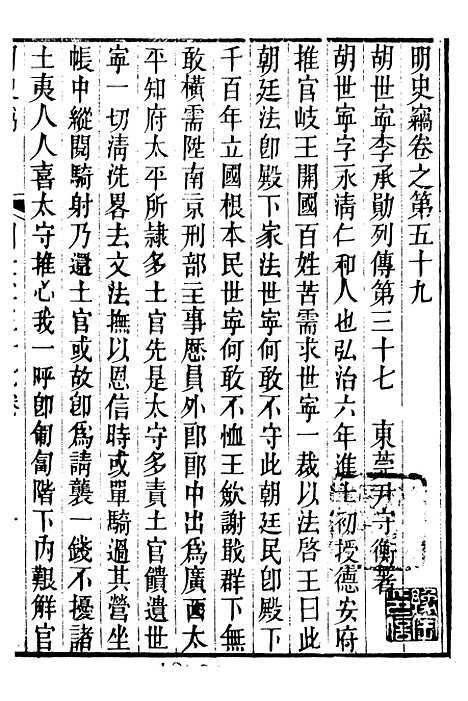 明史竊卷之第五十九
胡世寧李承勛列傳第三十七　東莞尹守衡著
胡世寧字永清仁和人也弘治六年進士初授德安府
推官岐王開國百姓苦需求世寧一裁以法啓王曰此
朝廷法卽殿下家法世寧何敢不守此朝廷民卽殿下
千百年立國根本民世寧何敢不恤王歛謝戢群下無
敢橫需陞南京刑部主事歷員外郎郎中出爲廣西太
平知府太平所隸多土官先是太守多責土官饋遺世
寧一切淸洗畧去文法撫以恩信時或單騎過其營坐
帳中縱閱騎射乃還土官或故卽爲請襲一錢不擾諸
土夷人人喜太守推心我一呼卽匍匐階下內艱解官